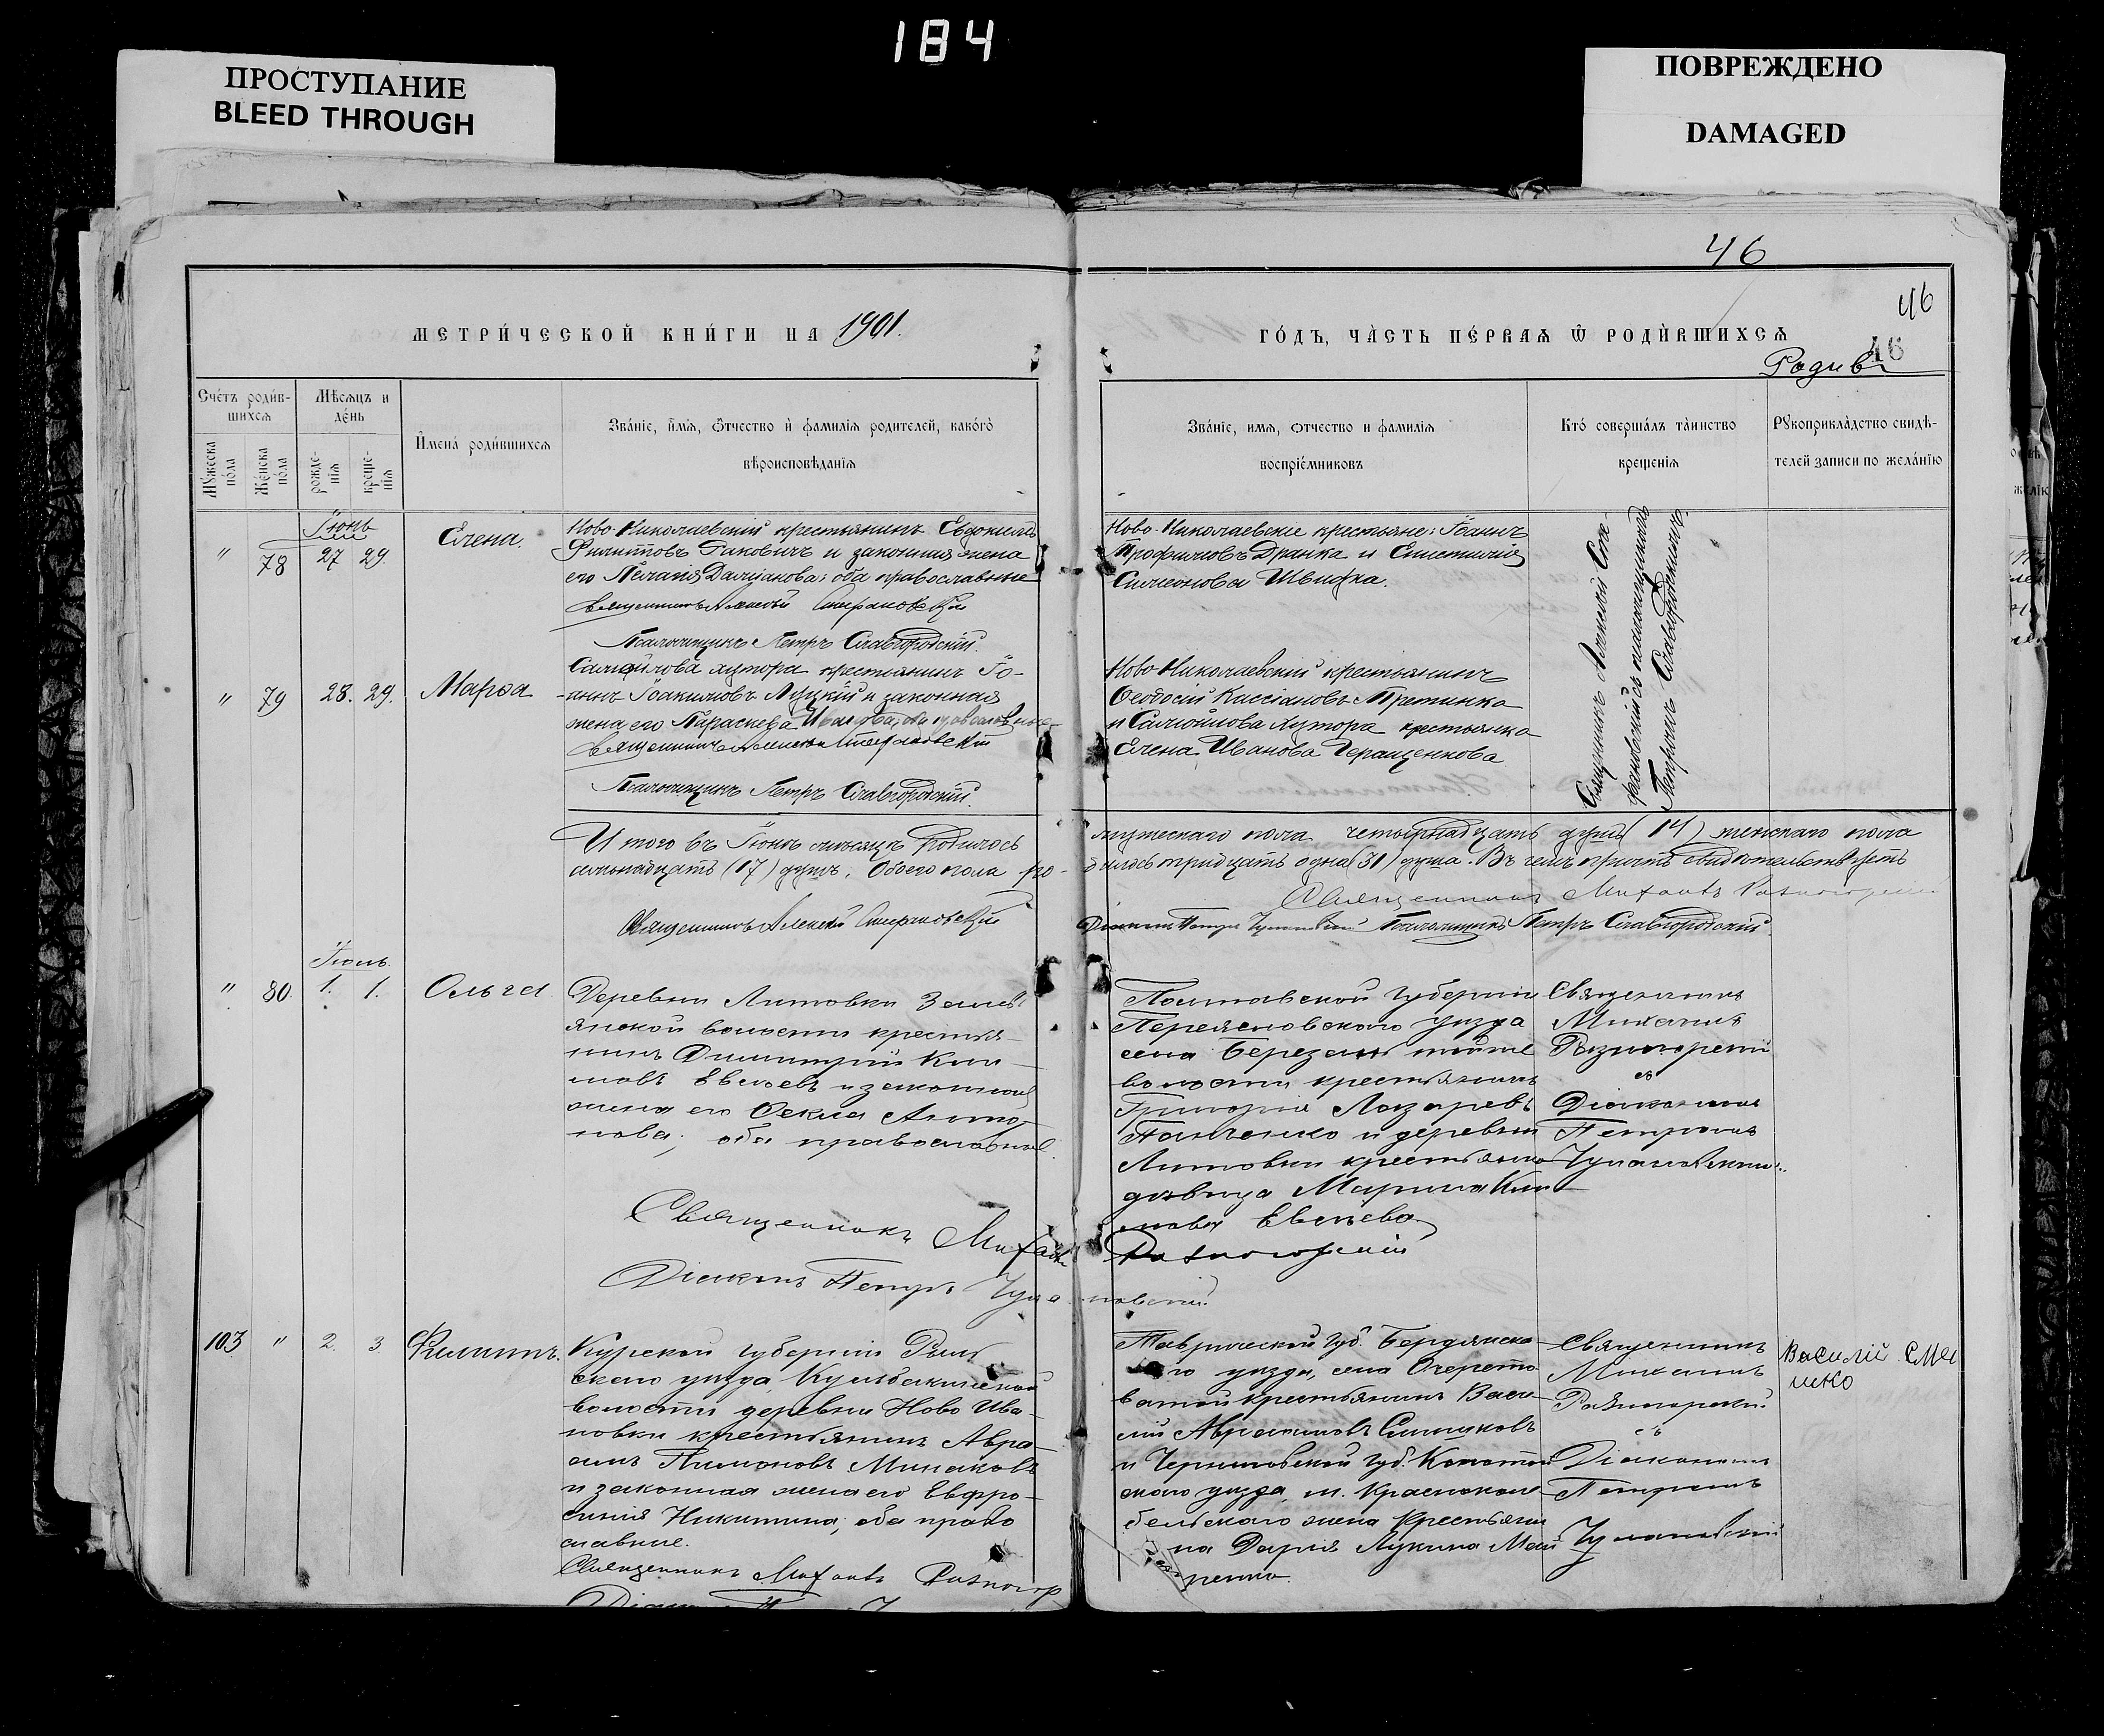 184
ПРОСТУПАНИЕ
BLEED THROUGH
ПОВРЕЖДЕНО
DAMAGED
46
46
46
МЕТРИ́ЧЕСКОЙ КНИ́ГИ НА 1901.
ГО́ДЪ, ЧА̀СТЬ ПЕ́РВАѦ Ѿ РОДЍВШИХСѦ
Родив
Сче́тъ роди́в-
шихсѧ
Мѣсѧцъ и
де́нь
Мꙋ́жеска
по́ла
Же́нска
по́ла
рожде-
нїѧ
креще-
нїѧ
И҆мена̀ роди́вшихсѧ
Зва́нїе, и҆́мѧ, ѻ҆́тчество и҆ фамилїѧ родителей, како́гѡ
вѣроисповѣданїѧ
Зва́нїе, имѧ, ѻтчество и фамилїѧ
воспрїе́мниковъ
Кто́ соверша́лъ та̀инство
крещенїѧ
Рꙋкоприкла̀дство свидѣ-
телей записи по жела́нїю
Іюнь
" 78 27 29. Елена.
Ново-Николаевскій крестьянинъ Евдокимъ
Филиповъ Гаковичъ и законная жена
его Пелагія Даміанова; оба православные
Священникъ Алексей Стефановскій
Псаломщикъ Петръ Славгородскій.
Ново-Николаевскіе крестьяне: Іоаннъ
Трофимовъ Дранка и
Симеонова Швидка.
Священникъ Алексей Сте-
фановскій съ псаломщикомъ
Петромъ Славгородскимъ.
" 79 28. 29. Марѳа
Самойлова хутора крестьянинъ Іо-
аннъ Іоакимовъ Луцкій и законная
жена его Параскева Иванова; оба православные
Священникъ Алексей Стефановскій
Псаломщикъ Петръ Славгородскій.
Ново-Николаевскій крестьянинъ
Ѳеодосій Кассіановъ
и Самойлова хутора крестьянка
Елена Иванова Геращенкова
Итого въ Іюнѣ мѣсяцѣ родилось
мужескаго пола четырнадцать душъ (14) женскаго пола
семьнадцать (17) душъ. Обоего пола ро-
дилось тридцать одна (31) душа. Въ чемъ причтъ свидѣтельствуетъ
Священникъ Михаилъ Разногорскій
Священникъ Алексей Стефановскій
Діаконъ Петръ Псаломщикъ Петръ Славгородскій.
Іюль.
" 80. 1. 1. Ольга
Деревни Литовки
волости крестья-
нинъ Димитрій Кли-
мовъ Евсѣевъ и законная
жена его Ѳекла Анто-
нова; оба православные.
Священникъ Михаилъ Разногорскій
Діаконъ Петръ
Полтавской Губерніи
Переясловскаго уѣзда
села Березани тойже
волости крестьянинъ
Григорій Лазаревъ
Панченко и деревни
Литовки крестьянка
дѣвица Марина Кли-
мова Евсѣева
Священникъ
Михаилъ
Разногорскій
съ
Діакономъ
Петромъ
103 " 2. 3. Филиппъ.
Курской губерніи Рыль
скаго уѣзда,
волости деревни Ново Ива-
новки крестьянинъ Авра-
амъ Пимоновъ Минаковъ
и законная жена его Евфро-
синія Никитина; оба право
славные.
Священникъ Михаилъ Разногор
Таврической Губ. Бердянска
го уѣзда, села Очерето
ватой крестьянинъ Васи-
лій Авраамовъ
и Черниговской Губ. Конотоп
скаго уѣзда, м. Красноколе
бельскаго жена Крестьяни
на Дарія Лукина
ренко
Священникъ
Михаилъ
Разногорскій
съ
Діакономъ
Петромъ
Василій